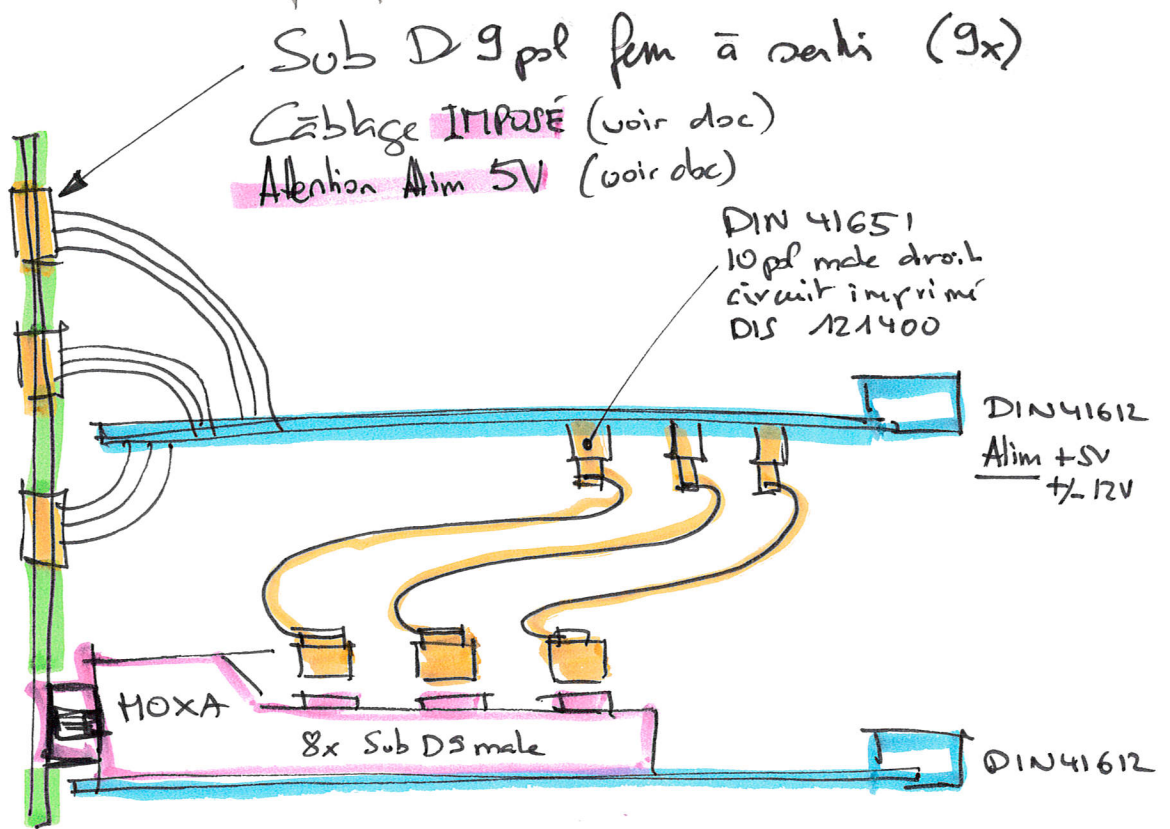 Sub D 9 pol fem à sertir (9x)
Câblage IMPOSÉ (voir doc)
Attention Alim 5V (voir doc)
DIN 41651
10 pol male droit
circuit imprimé
DIS 121400
DIN41612
Alim +5V
+/- 12V
MOXA
8x Sub D9 male
DIN41612